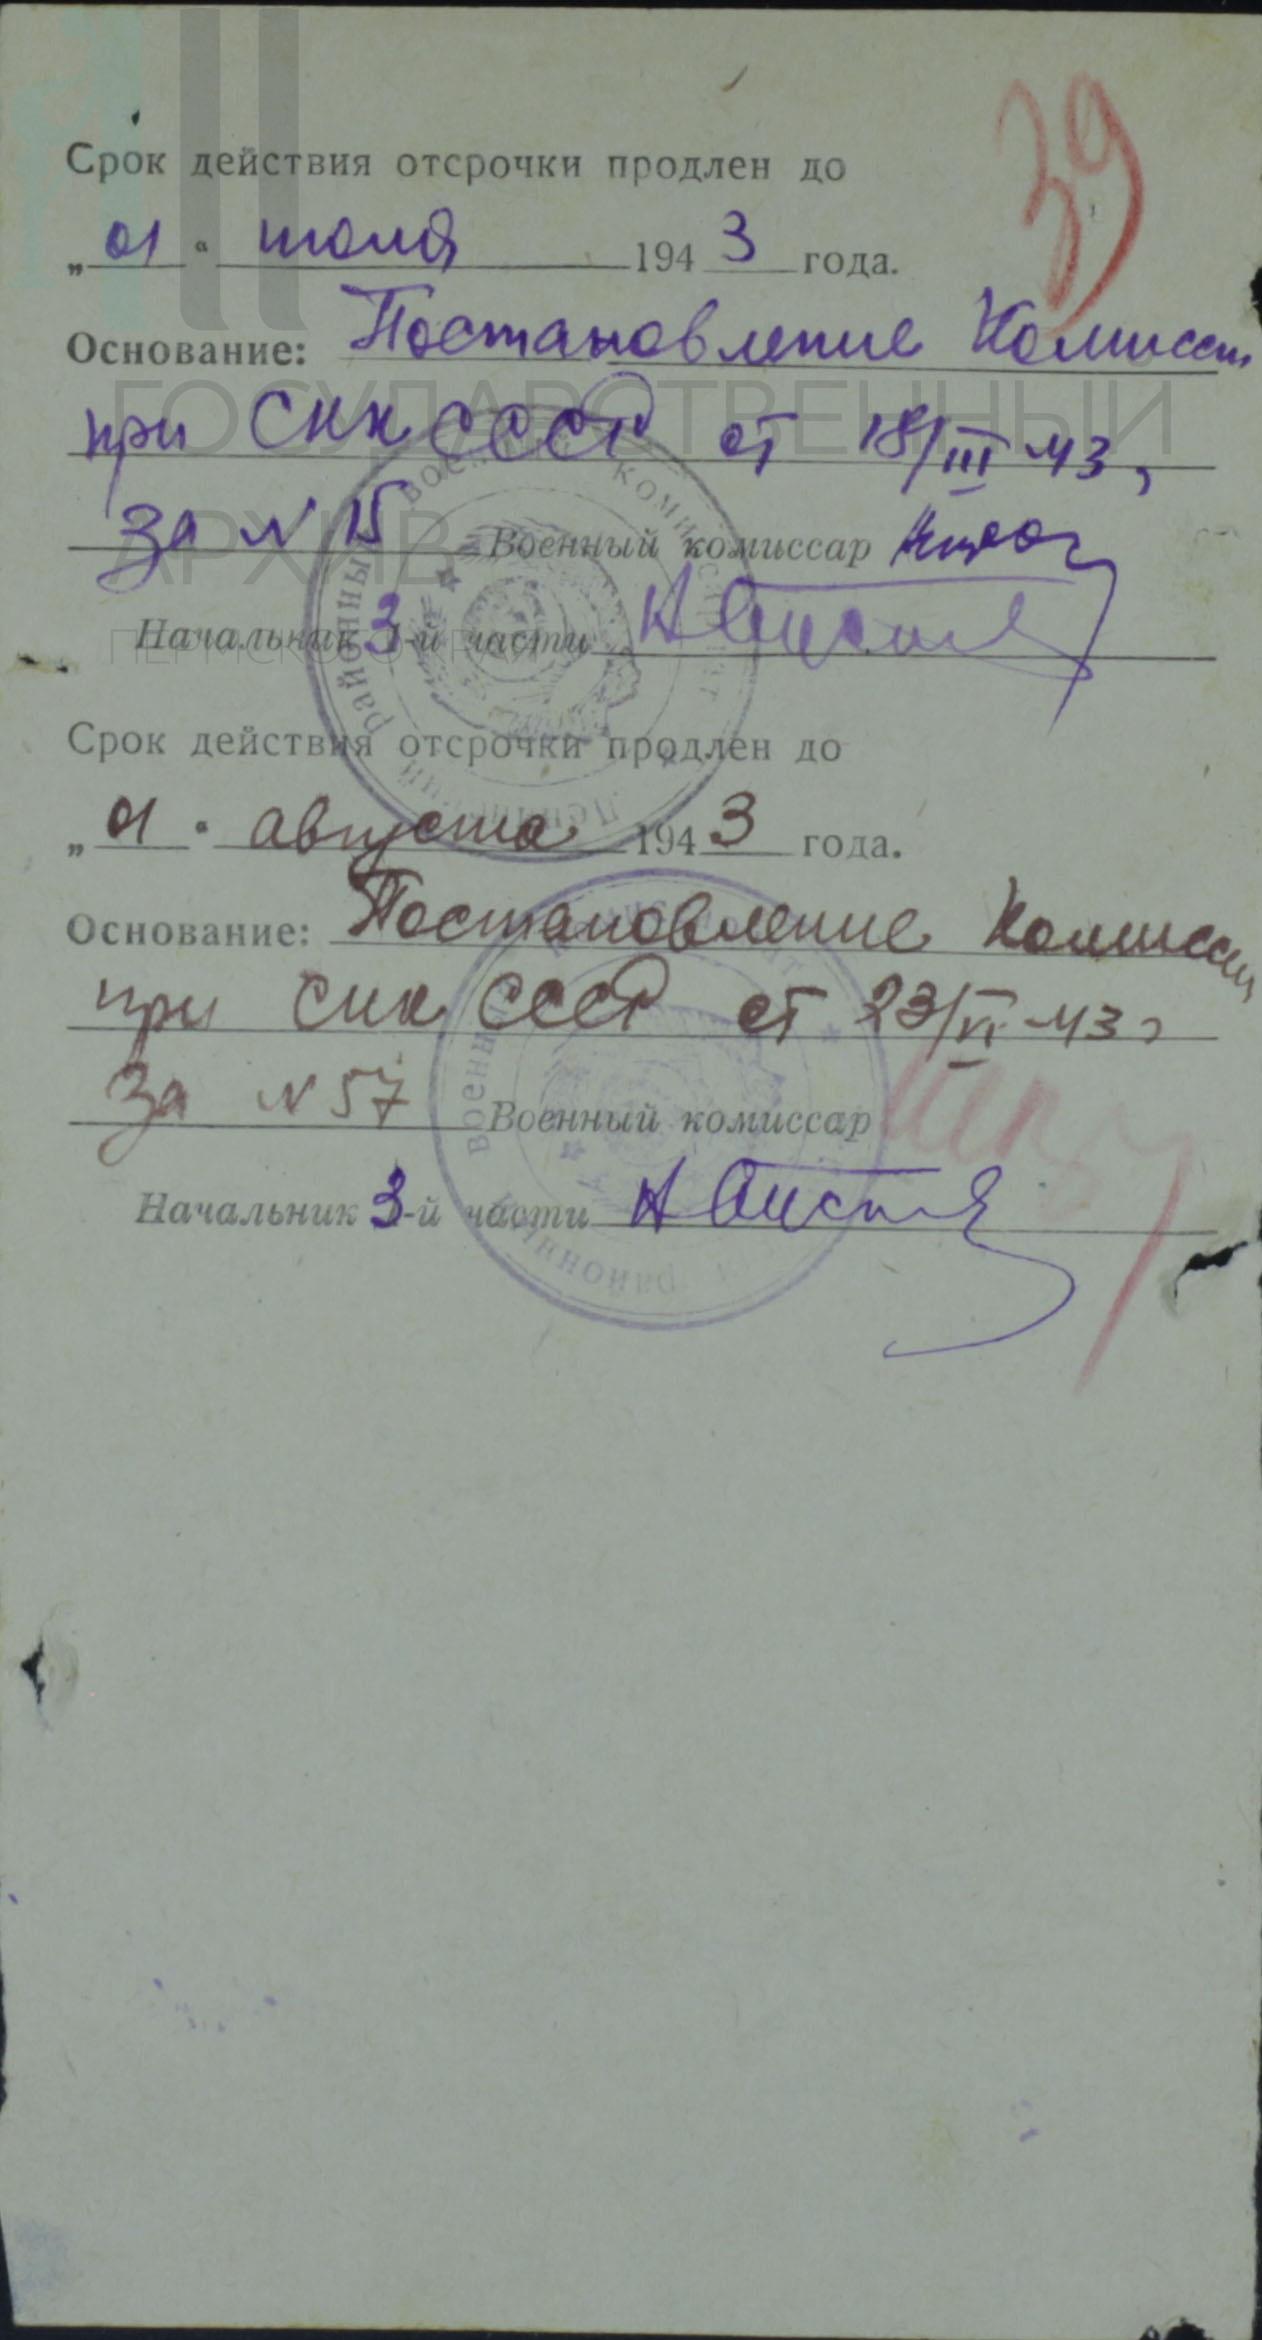 39
Срок действия отсрочки продлен до
„01“ июля 1943 года.
Основание: Постановление Комиссии
при СНК СССР от 18/III-43г
за N 15 Военный комиссар
Начальник 3-й части
Срок действия отсрочки продлен до
„01“ августа 1943 года.
Основание: Постановление Комиссии
при СНК СССР от 23/VI-43г
за N 57 Военный комиссар
Начальник 3-й части
ГОСУДАРСТВЕННЫЙ
АРХИВ